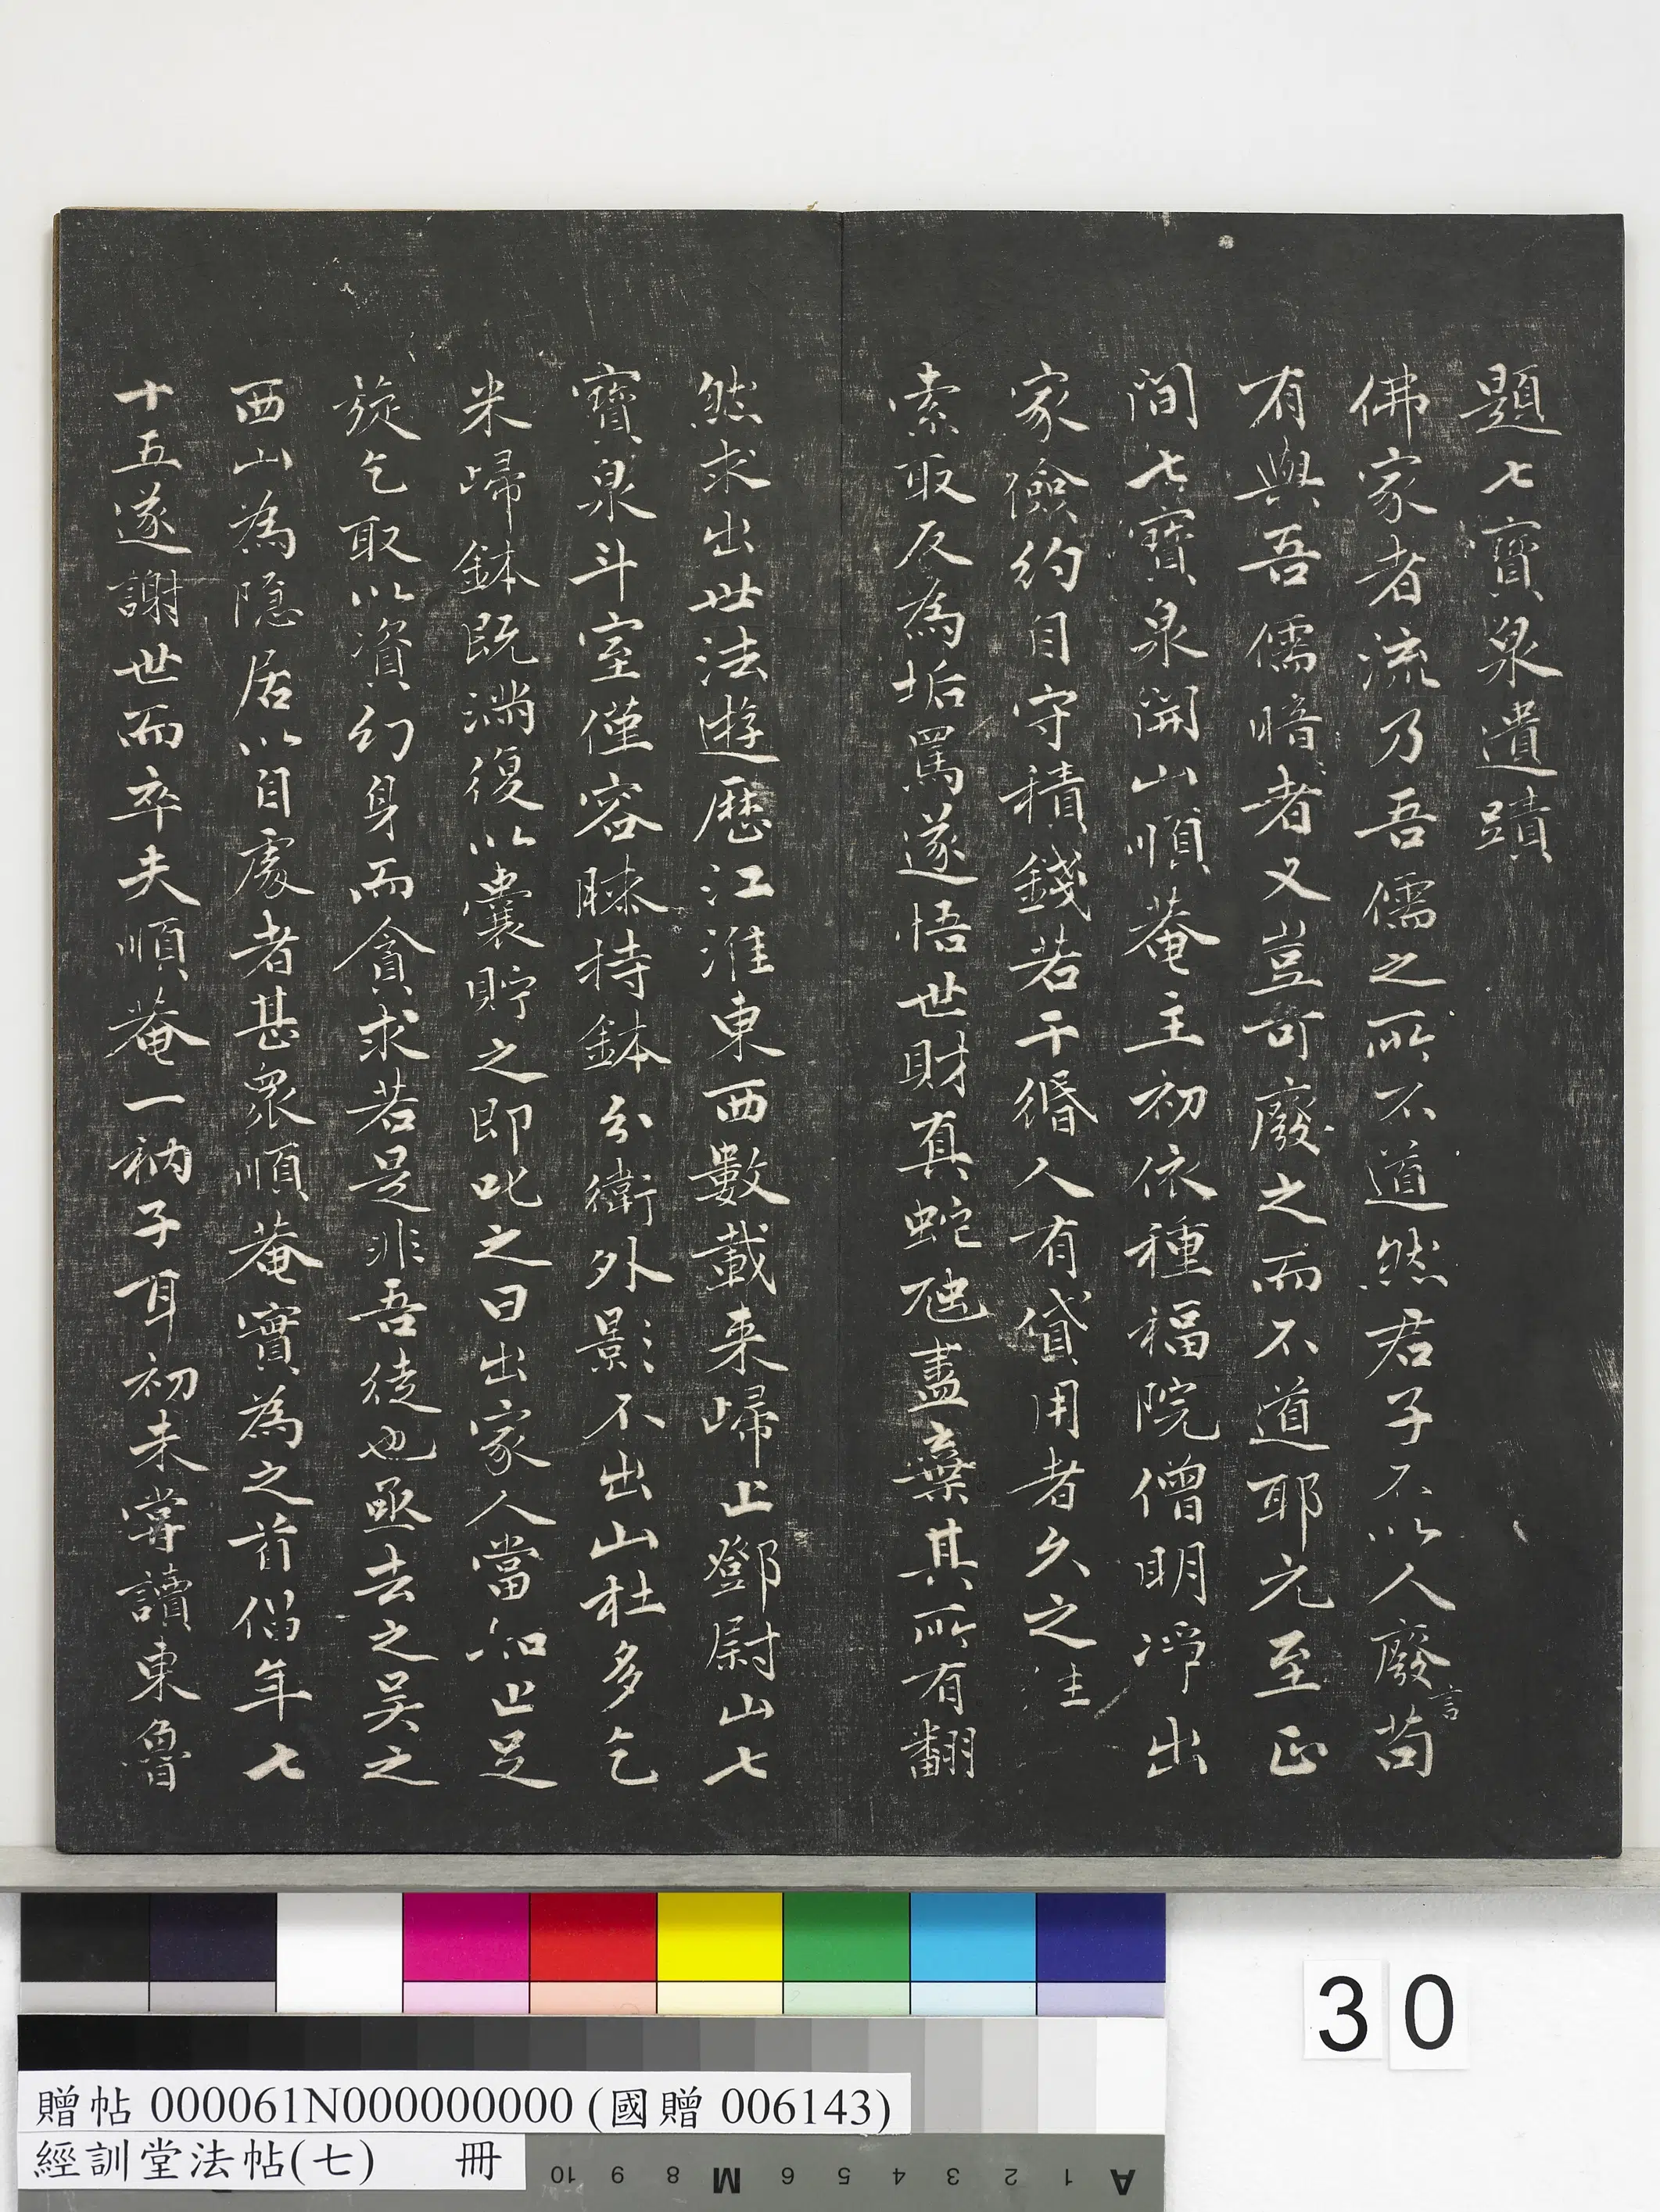 題七寶泉遺蹟
佛家者流乃吾儒之所不道然君子不以人廢言苟
有與吾儒暗者又豈可廢之而不道耶元至正
間七寶泉開山順菴主初依種福院僧明淨出
家儉約自守積錢若干緡人有貸用者久之往
索取反為垢罵遂悟世財真蛇虺盡棄其所有翻
然求出世法遊歷江淮東西數載来歸止鄧尉山七
寶泉斗室僅容膝持鉢分衛外影不出山杜多乞
米歸鉢既滿復以囊貯之即叱之曰出家人當知止足
旋乞取以資幻身而貪求若是非吾徒也亟去之吴之
西山為隱居以自處者甚衆順菴實為之首倡年七
十五遂謝世而卒夫順菴一衲子耳初未嘗讀東魯
30
贈帖 000061N000000000 (國贈 006143)
經訓堂法帖(七) 冊
A 1 2 3 4 5 6 M 8 9 10